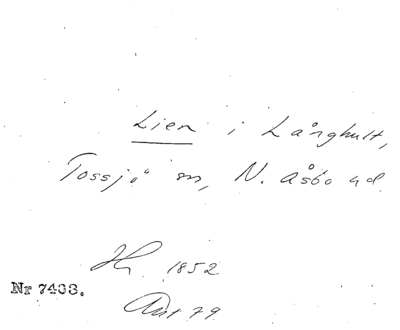 Lien i Långhult,
Tossjö sn, N. Åsbo hd
Hj. 1852
Nr 7433.
Ant 79